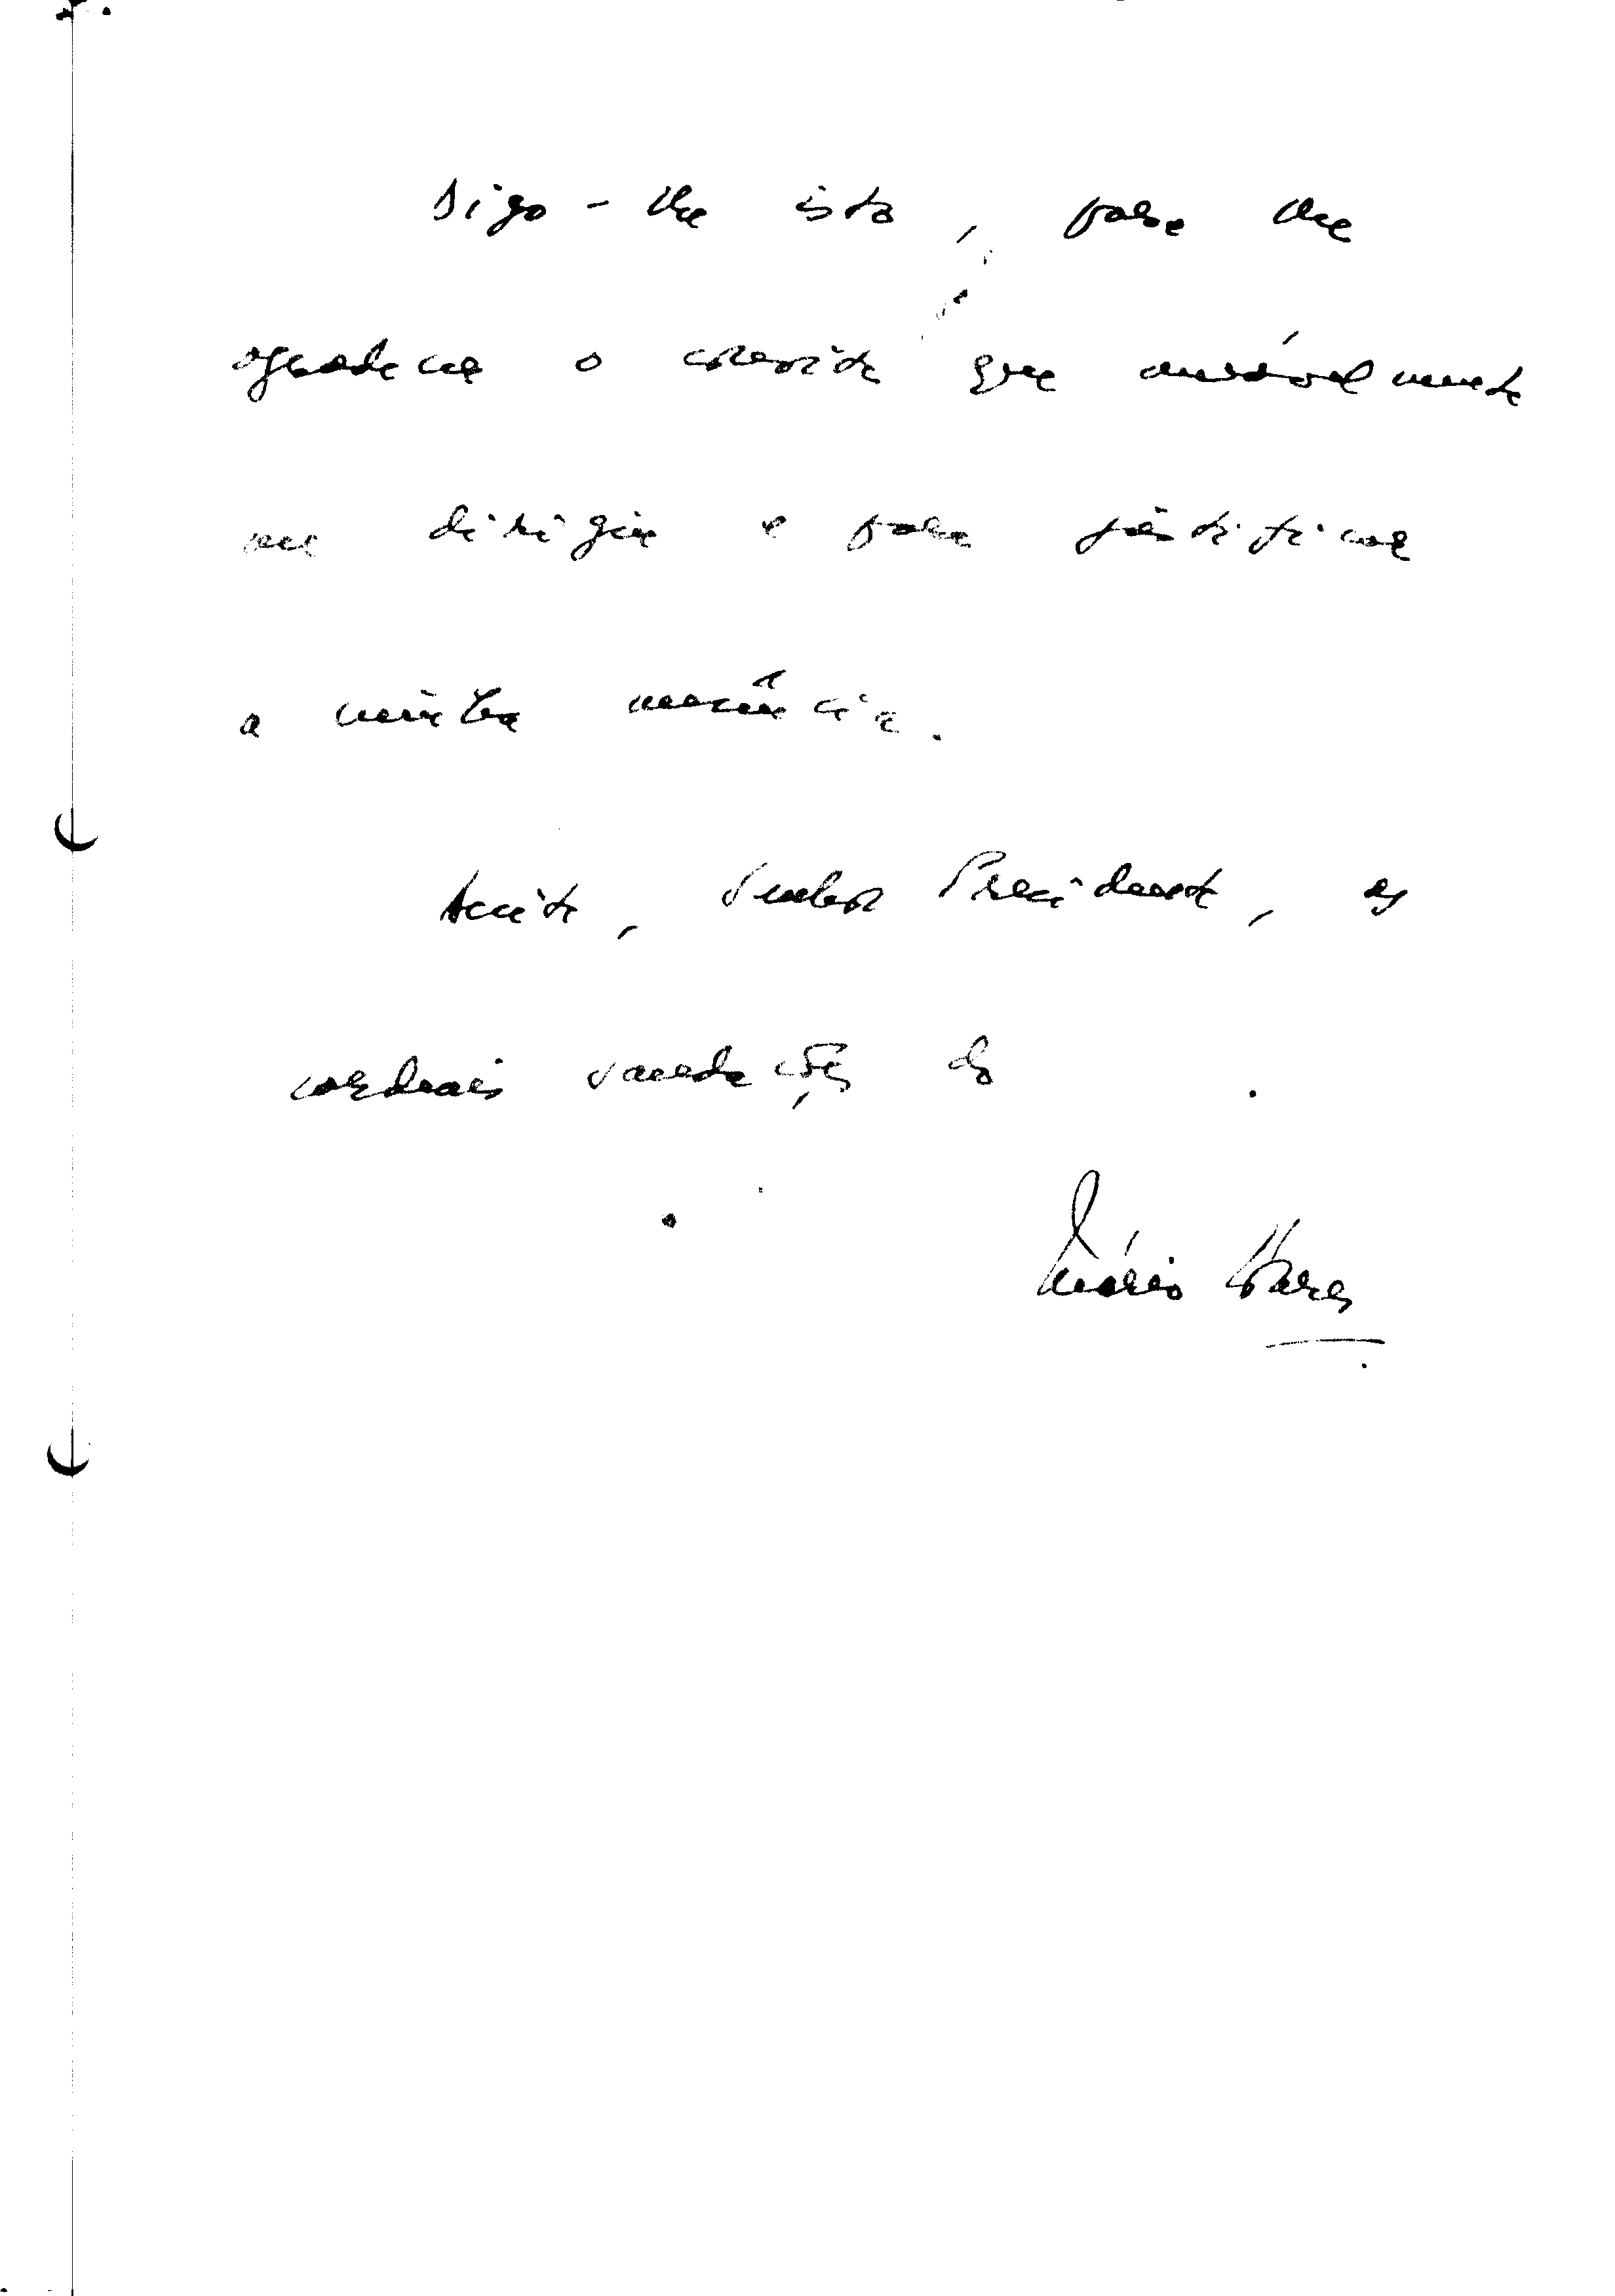 Digo-lhe isto, para lhe
agradecer o convite que amavelmente
me dirigiu e para justificar
a minha ausência.
Aceite, Senhor Presidente, as
cordeais saudações do
Mário Soares